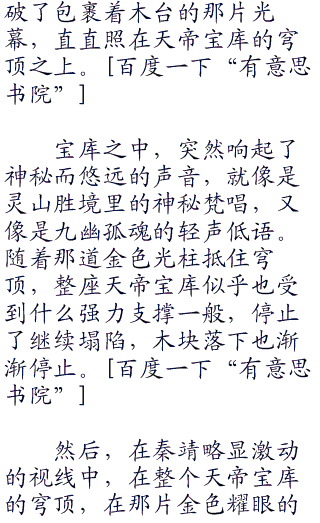 破了包裹着木台的那片光
幕，直直照在天帝宝库的穹
顶之上。[百度一下“有意思
书院”]
宝库之中，突然响起了
神秘而悠远的声音，就像是
灵山胜境里的神秘梵唱，又
像是九幽孤魂的轻声低语。
随着那道金色光柱抵住穹
顶，整座天帝宝库似乎也受
到什么强力支撑一般，停止
了继续塌陷，木块落下也渐
渐停止。[百度一下“有意思
书院”]
然后，在秦靖略显激动
的视线中，在整个天帝宝库
的穹顶，在那片金色耀眼的